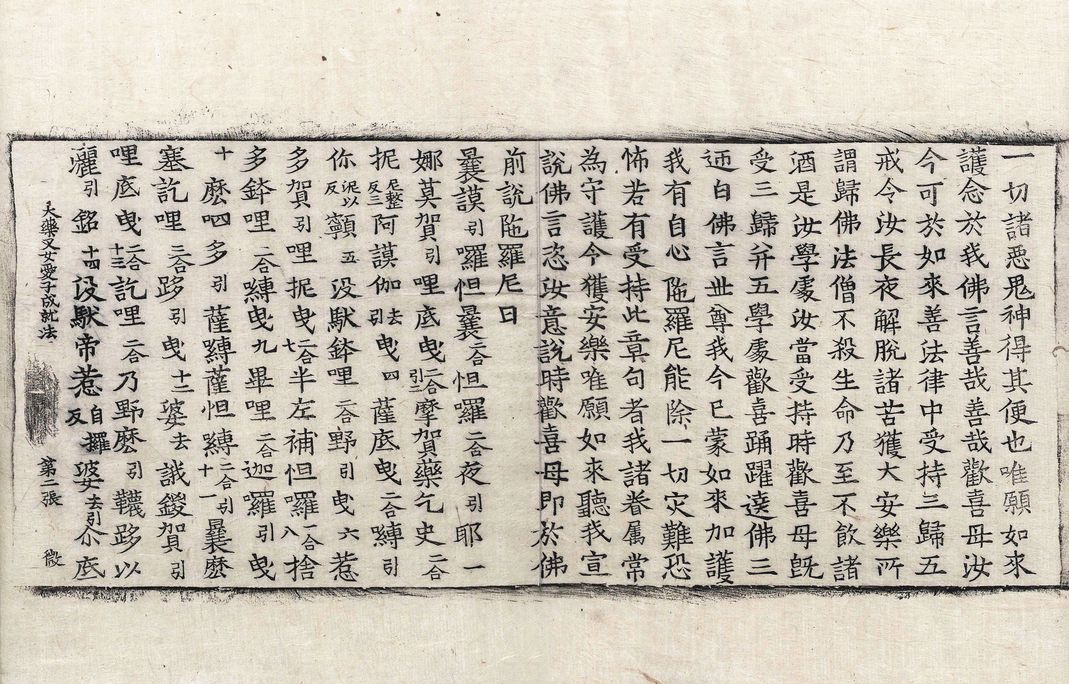 一切諸惡鬼神得其便也唯願如來
護念於我佛言善哉善哉歡喜母汝
今可於如來善法律中受持三歸五
戒令汝長夜解脫諸苦獲大安樂所
謂歸佛法僧不殺生命乃至不飲諸
酒是汝學處汝當受持時歡喜母旣
受三歸并五學處歡喜踊躍遶佛三
迊白佛言世尊我今已蒙如來加護
我有自心陁羅尼能除一切灾難恐
怖若有受持此章句者我諸眷屬常
為守護令獲安樂唯願如來聽我宣
說佛言恣汝意說時歡喜母即於佛
前說陁羅尼曰
曩謨引囉怛曩二合怛囉二合夜引耶一
娜莫賀引哩底曳二合引二摩賀藥乞史二合
抳尼整反三阿謨伽去引曳四薩底曳二合嚩引
你泥以反顊五沒馱鉢哩二合野引曳六惹
多賀引哩抳曳七二合半左補怛囉一合八捨
多鉢哩二合嚩曳九畢哩二合迦囉引曳
十麽四多引薩嚩薩怛嚩二合引十一曩麽
塞訖哩二合跢引曳十二婆去誐鑁賀引
哩底曳二合十三訖哩二合乃野麽引韈跢以
灑引銘十四沒馱帝惹自攞反婆去引尒底
大藥叉女愛子成就法 第二張 微